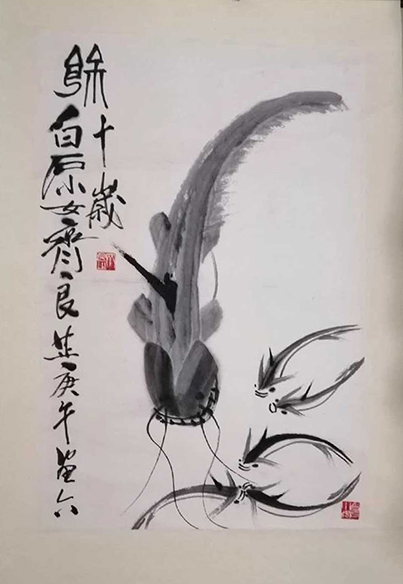 餘
白石小女齊良芷庚午畫六
十歲